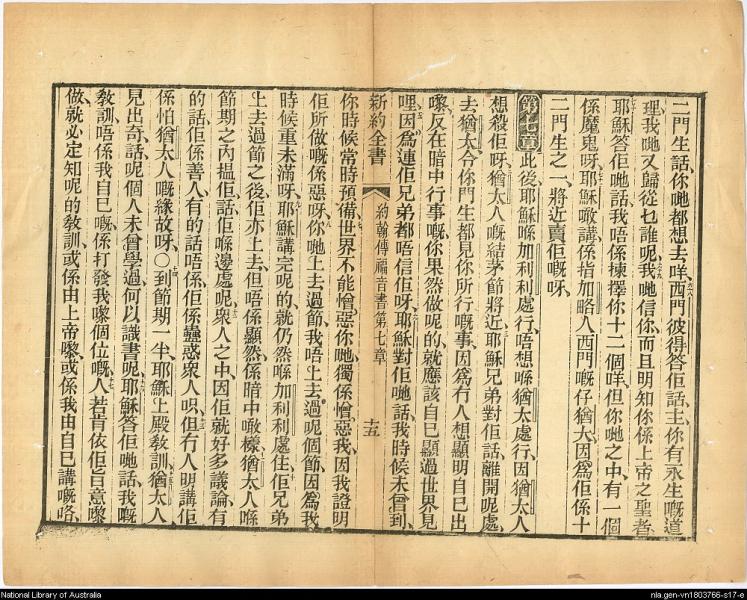 二門生話、你哋都想去咩、西門彼得答佢話、主、你有永生嘅道
理、我哋又歸從乜誰呢、我哋信你、而且明知你係上帝之聖者、
耶穌答佢哋話、我唔係揀擇你十二個咩、但你哋之中、有一個
係魔鬼呀、耶穌噉講、係指加畧人西門嘅仔猶大、因爲佢係十
二門生之一、將近賣佢嘅呀、
第七章此後、耶穌喺加利利處行、唔想喺猶太處行、因猶太人
想殺佢呀、猶太人嘅結茅節將近、耶穌兄弟對佢話、離開呢處
去猶太、令你門生都見你所行嘅事、因爲冇人想顯明自己出
嚟、反在暗中行事嘅、你果然做呢的、就應該自己顯過世界見
哩、因爲連佢兄弟都唔信佢呀、耶穌對佢哋話、我時候未曾到、
新約全書 約翰傳福音書第七章 十五
你時候常時預備、世界不能憎惡你哋、獨係憎惡我、因我證明
佢所做嘅係惡呀、你哋上去過節、我唔上去過呢個節、因爲我
時候重未滿呀、耶穌講完呢的、就仍然喺加利利處住、佢兄弟
上去過節之後、佢亦上去、但唔係顯然、係暗中噉樣、猶太人喺
節期之內搵佢、話佢喺邊處呢、衆人之中、因佢就好多議論、有
的話佢係善人、有的話唔係、佢係蠱惑衆人㗎、但冇人明講佢、
係怕猶太人嘅緣故呀、○到節期一半、耶穌上殿教訓、猶太人
見出奇、話呢個人未曾學過、何以識書呢、耶穌答佢哋話、我嘅
教訓、唔係我自己嘅、係打發我嚟個位嘅、人若肯依佢旨意嚟
做、就必定知呢的教訓、或係由上帝嚟、或係我由自己講嘅咯、
National Library of Australia
nla.gen-vn1803766-s17-e